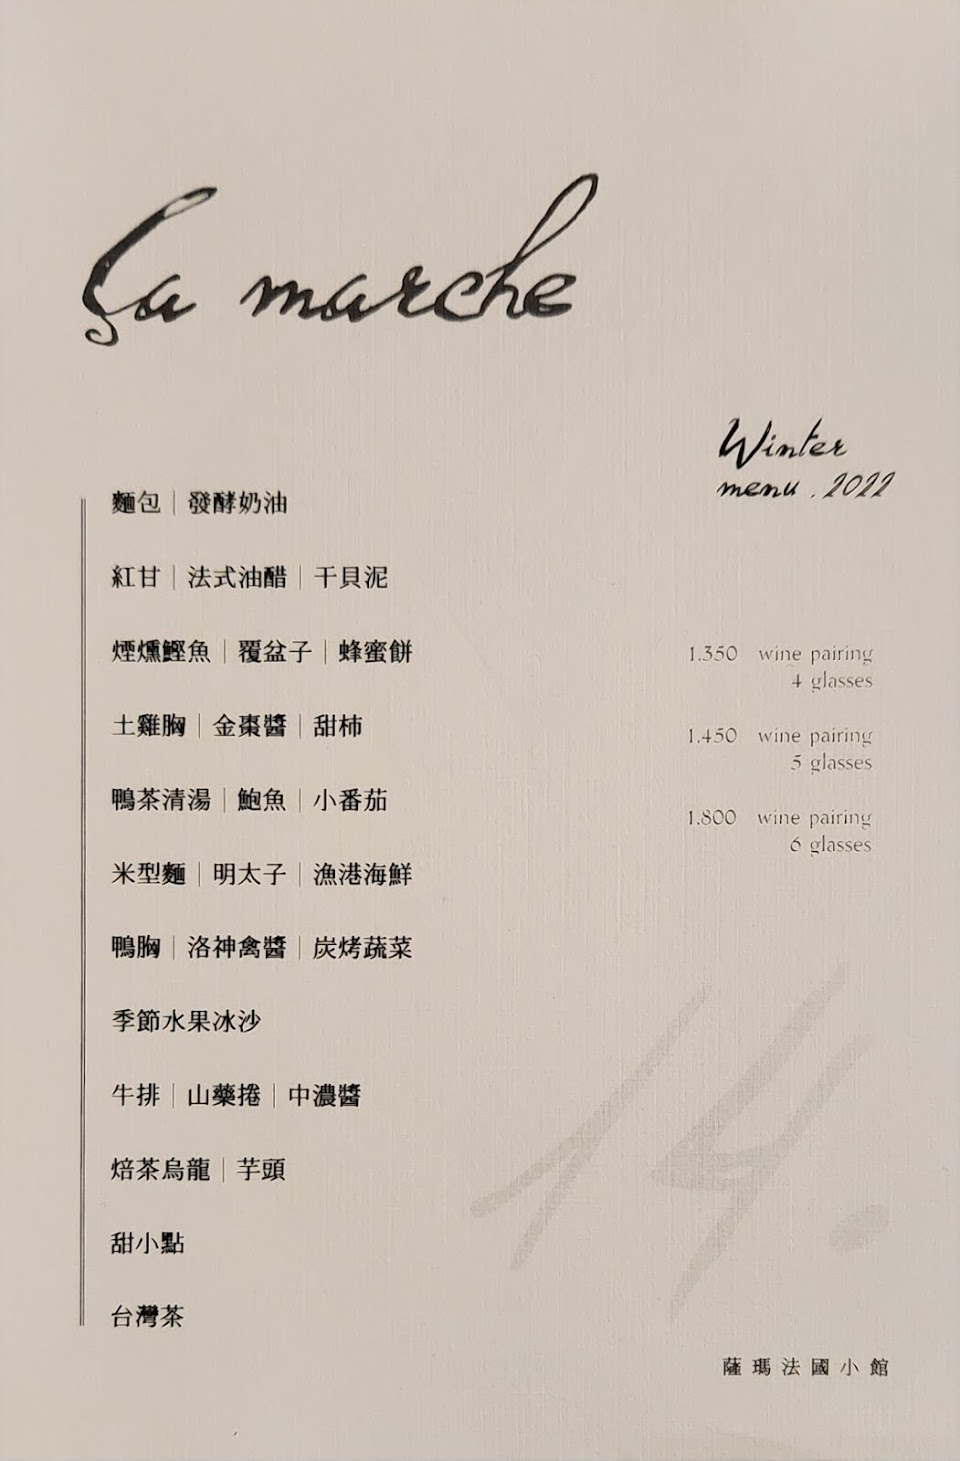 Ça marche
Winter
menu . 2022
麵包｜發酵奶油
紅甘｜法式油醋｜干貝泥
煙燻鰹魚｜覆盆子｜蜂蜜餅
土雞胸｜金棗醬｜甜柿
鴨茶清湯｜鮑魚｜小番茄
米型麵｜明太子｜漁港海鮮
鴨胸｜洛神禽醬｜炭烤蔬菜
季節水果冰沙
牛排｜山藥捲｜中濃醬
焙茶烏龍｜芋頭
甜小點
台灣茶
1.350 wine pairing
4 glasses
1.450 wine pairing
5 glasses
1.800 wine pairing
6 glasses
14.
薩瑪法國小館